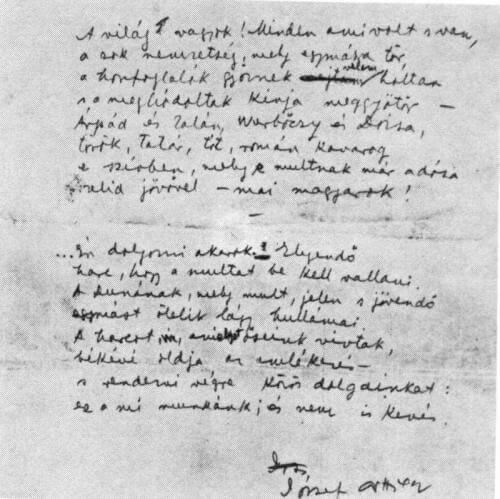 A világ vagyok! Minden ami volt s van,
a sok nemzetség, mely egymásra tör,
a honfoglalók győznek velem holtan
s a meghódoltak kínja meggyötör –
Árpád és Zalán, Werbőczy és Dózsa,
török, tatár, tót, román kavarog
e szívben, mely e multnak már adósa
szelid jövővel – mai magyarok!
–
...Én dolgozni akarok. Elegendő
harc, hogy a multat be kell vallani.
A Dunának, mely mult, jelen s jövendő
egymást ölelik lágy hullámai.
A harcot, őseink vívtak,
békévé oldja az emlékezés –
s rendezni végre közös dolgainkat:
ez a mi munkánk; és nem is kevés.
József Attila